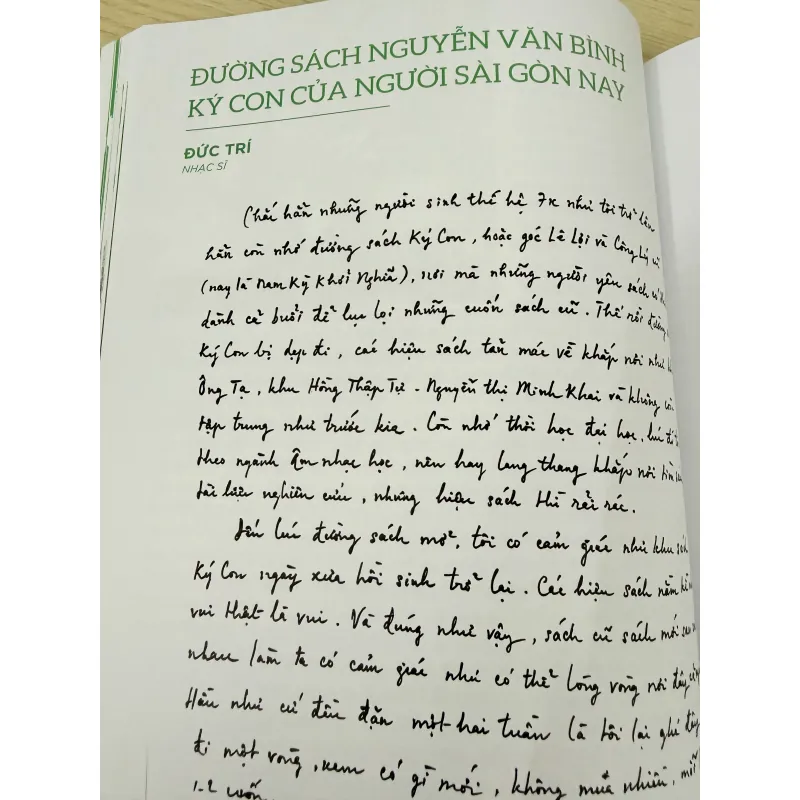 ĐƯỜNG SÁCH NGUYỄN VĂN BÌNH
KÝ CON CỦA NGƯỜI SÀI GÒN NAY
ĐỨC TRÍ
NHẠC SĨ
Chắc hẳn những người sinh thế hệ 7x như tôi trở lên
hẳn còn nhớ đường sách Ký Con, hoặc góc Lê Lợi và Công Lý cũ
(nay là Nam Kỳ Khởi Nghĩa), nơi mà những người yêu sách có
dành cả buổi để lục lọi những cuốn sách cũ. Thế rồi đường
Ký Con bị dẹp đi, các hiệu sách tản mác về khắp nơi như
Ông Tạ, khu Hồng Thập Tự - Nguyễn Thị Minh Khai và không còn
tập trung như trước kia. Còn nhớ thời học đại học, lúc đi
theo ngành âm nhạc học, nên hay lang thang khắp nơi tìm
tài liệu nghiên cứu, nhưng hiệu sách thì rải rác.
Đến lúc đường sách mở, tôi có cảm giác như khu sách
Ký Con ngày xưa hồi sinh trở lại. Các hiệu sách nằm kề
vui thật là vui. Và đúng như vậy, sách cũ sách mới
nhau làm ta có cảm giác như có thể lòng vòng nơi đây
Hầu như cứ đều đặn một hai tuần là tôi lại ghé đây
đi một vòng, xem có gì mới, không mua nhiều, mỗi
1-2 cuốn